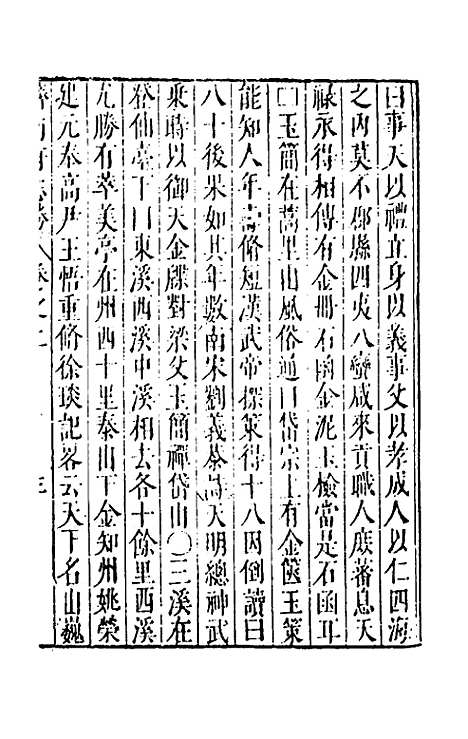 曰事天以禮立身以義事父以孝成人以仁四海
之內莫不郡縣四夷八蠻咸來貢職人庶蕃息天
祿永得相傳有金冊石函金泥玉檢當是石函耳
曰玉簡在蒿里山風俗通曰岱宗上有金篋玉策
能知人年壽脩短漢武帝探策得十八因倒讀曰
八十後果如其年數南宋劉義恭啇天明總神武
乘時以御天金牒對梁父玉簡禪岱山〇三溪在
登仙亭下曰東溪西溪中溪相去各十餘里西溪
尤勝有萃美亭在州西十里泰山下金知州姚榮
建元奉高尹王悟重脩徐琰記畧云天下名山巍
濟南府志 卷之二 三